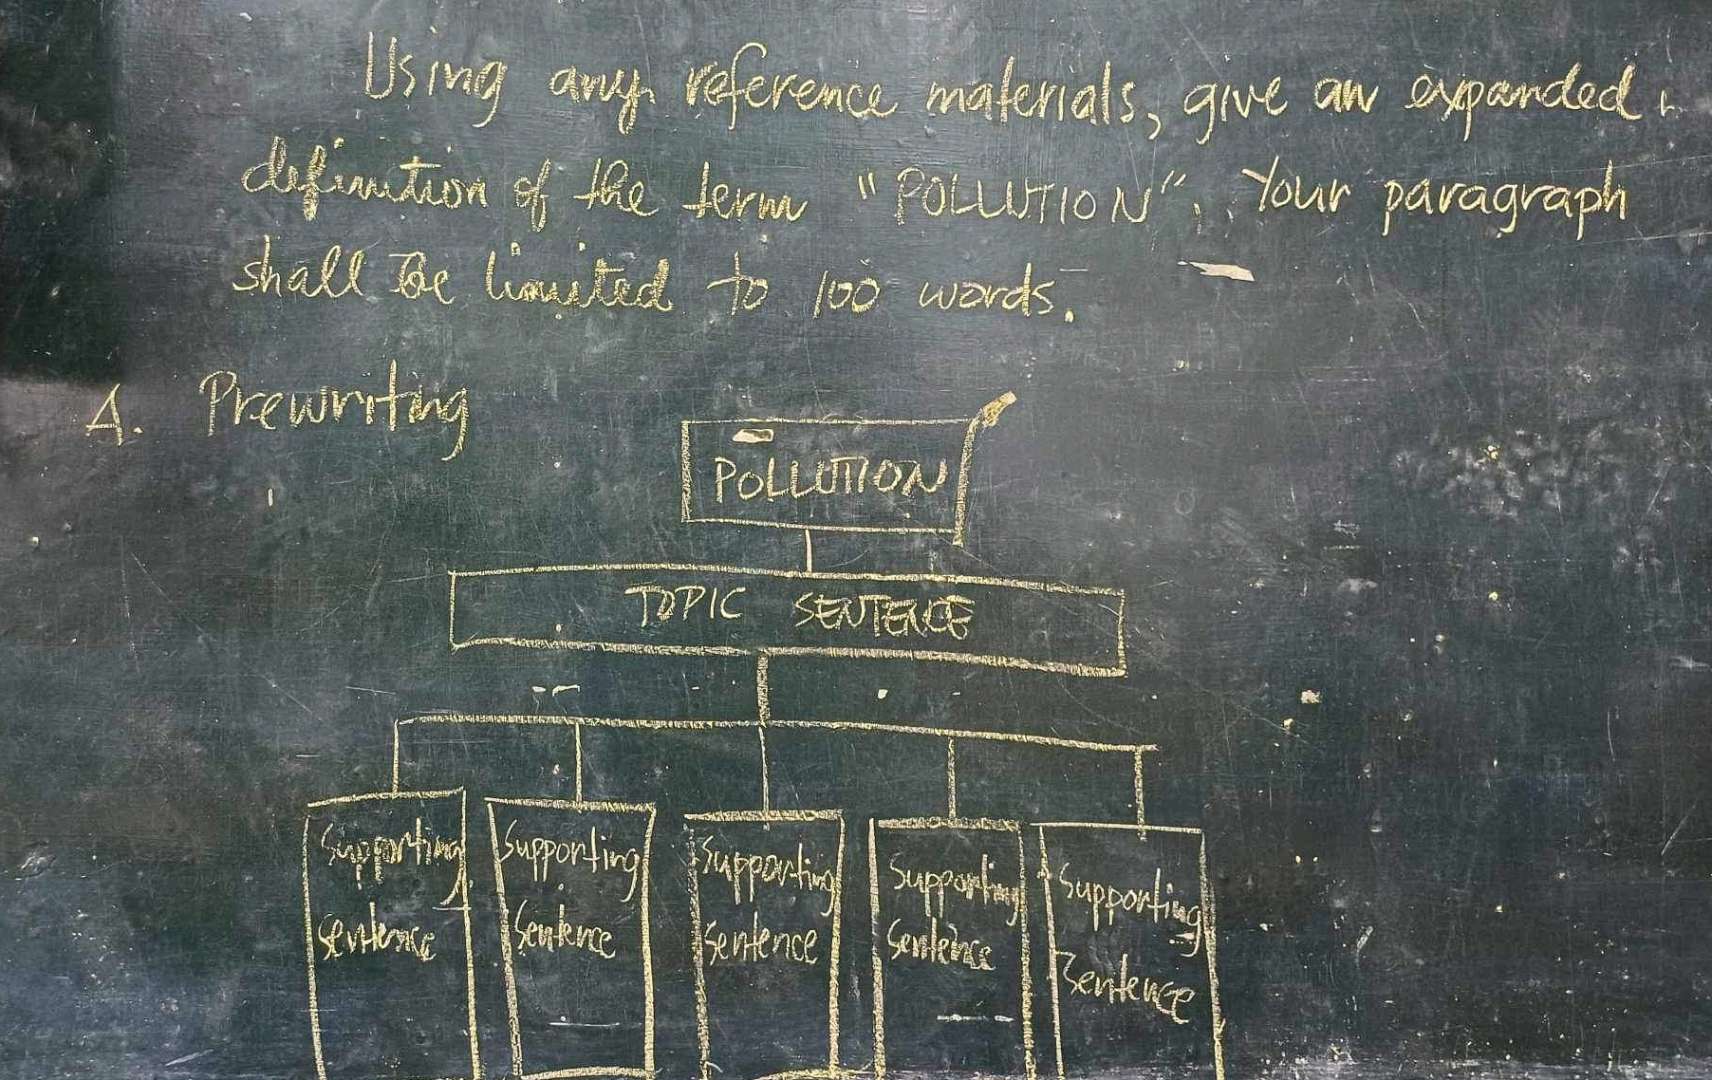 Using any reference materials, give an expanded
definition of the term "POLLUTION". Your paragraph
shall be limited to 100 words.
A. Prewriting
POLLUTION
TOPIC SENTENCE
Supporting
sentence
Supporting
Sentence
Supporting
Sentence
Supporting
Sentence
Supporting
Sentence